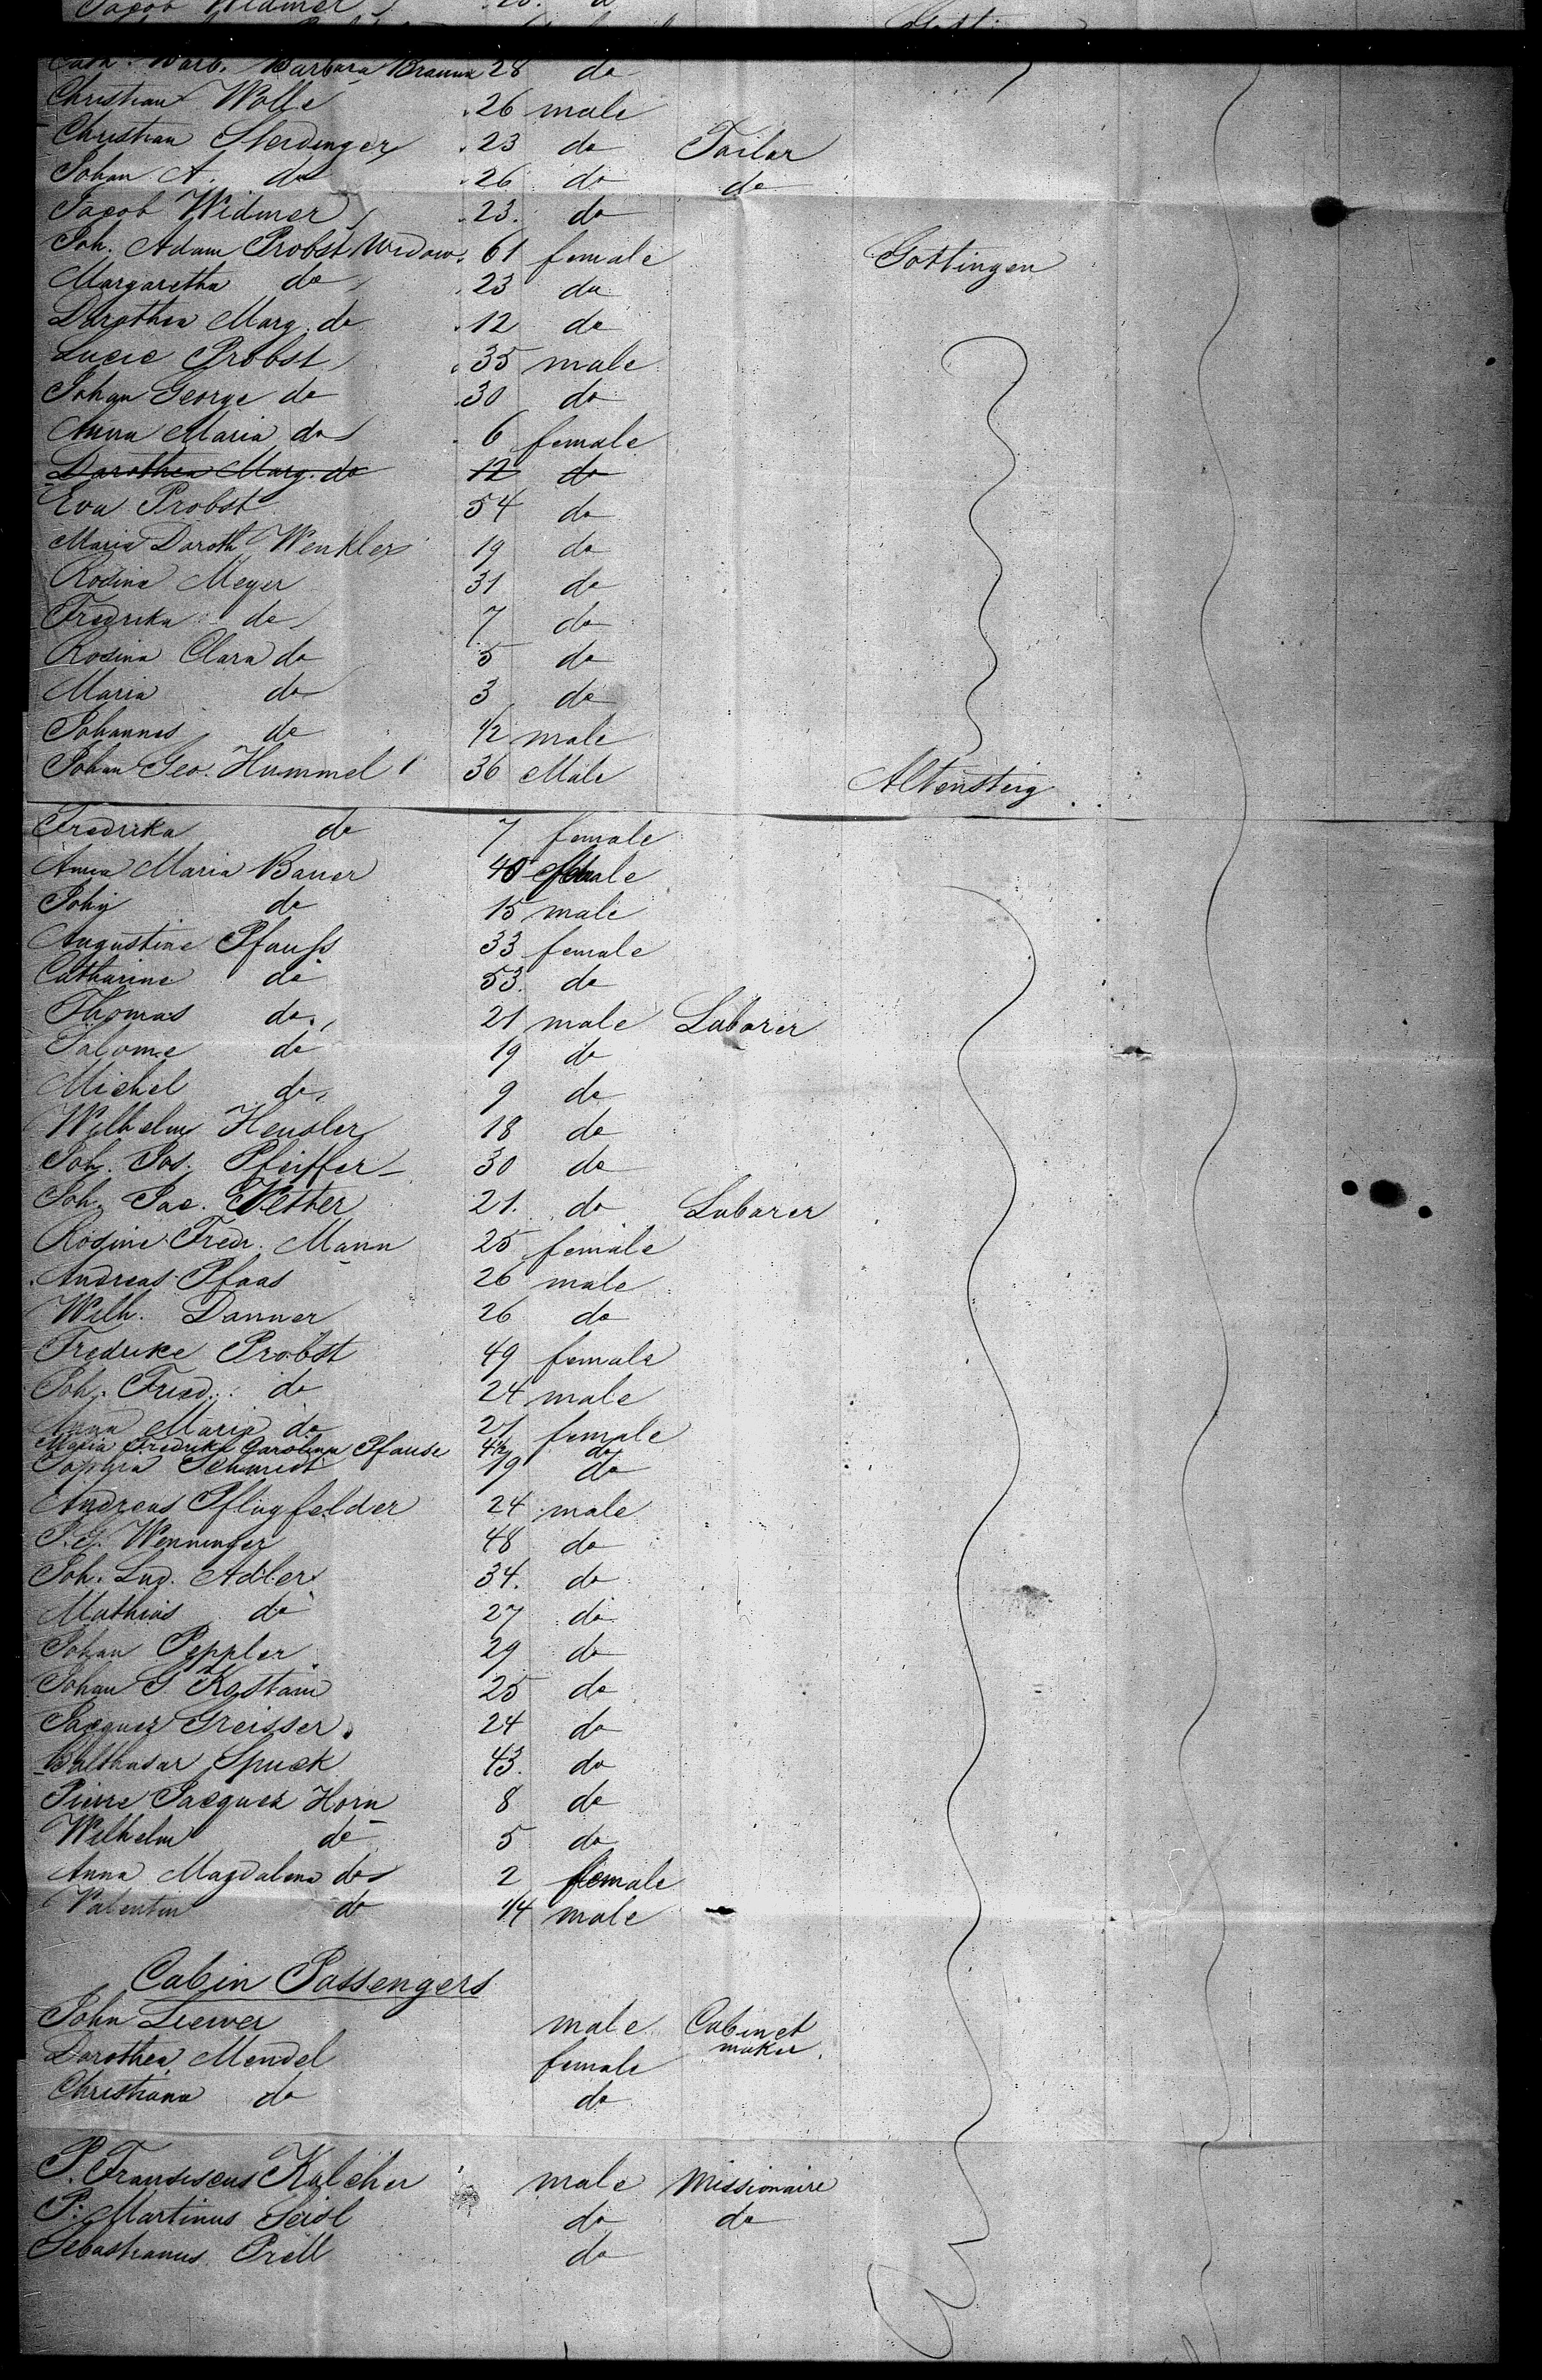 Jacob Widmer
Barb. Barbara Braunn 28 do
Christian Wolle 26 male
Christian Sterdinger 23 do Tailor
Johan A. do 26 do do
Jacob Widmer 23. do
Joh. Adam Probst Widow 61 female Gottingen
Margaretha do 23 do
Dorothea Marg. do 12 do
Lucie Probst 35 male
Johan George do 30 do
Anna Maria do 6 female
Dorothea Marg. do 12 do
Eva Probst 54 do
Maria Doroth Wenkler 19 do
Rosina Meyer 31 do
Fredrika do 7 do
Rosina Clara do 5 do
Maria do 3 do
Johannes do 1/2 male
Johan Geo. Hummel 36 Male Altensteig
Fredrika do 7 female
Anna Maria Bauer 40 female
John do 15 male
Augustine Pfauss 33 female
Catharine do 53. do
Thomas do. 21 male Laborer
Salome do 19 do
Michel do. 9 do
Wilhelm Heusler 18 do
Joh. Jos. Pfeiffer 30 do
Joh. Jac. Vetter 21. do Laborer
Rosine Fredr. Mann 25 female
Andreas Pfaas 26 male
Wilh. Danner 26 do
Fredrike Probst 49 female
Joh. Fried. do 24 male
Anna Maria do 21 female
Maria Fredrika Carolina Pfause 4 1/2 do
Sophia Schmidt 19 do
Andreas Pflugfelder 24 male
J. G. Wenninger 48 do
Joh. Lud. Adler 34. do
Mathias do 27 do
Johan Peppler 29 do
Johan G. Kastain 25 do
Jacques Greisser 24 do
Balthasar Spuck 43. do
Pierre Jacques Horn 8 do
Wilhelm do 5 do
Anna Magdalena do 2 female
Valentin do 1/4 male
Cabin Passengers
John Liewer male Cabinet maker.
Dorothea Mendel female
Christiana do do
P. Franciscus Kalcher male Missionaire
P. Martinus Seisl do do
Sebastianus Prell do